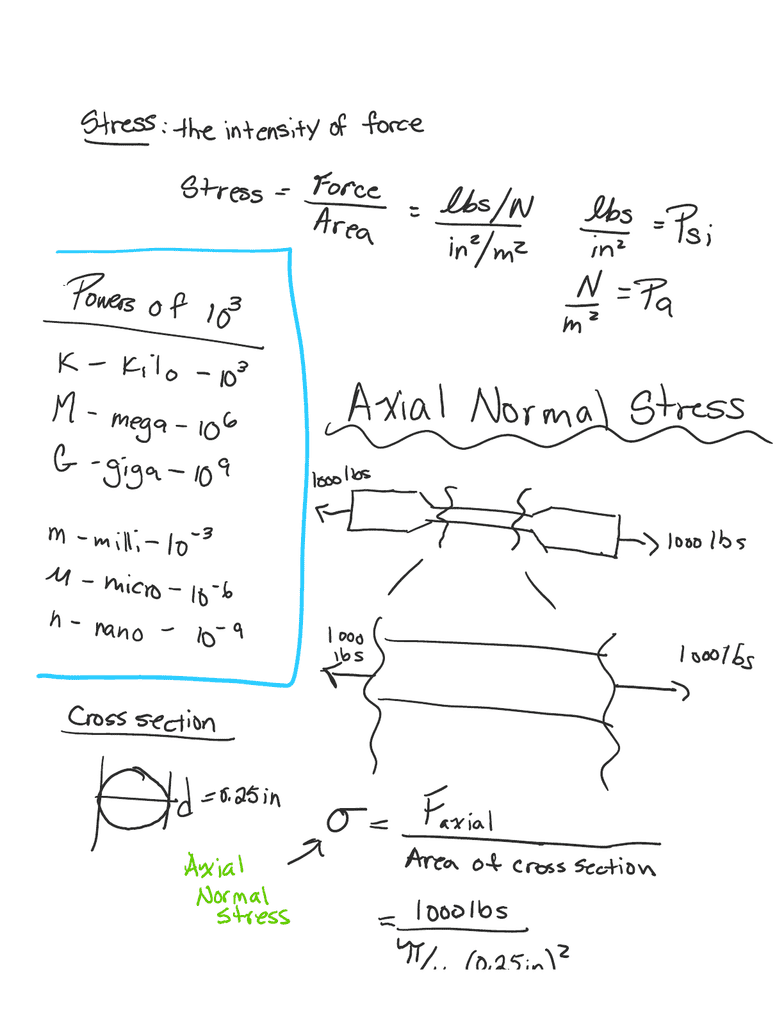 Stress: the intensity of force
Stress = Force / Area = lbs/N / in²/m²
lbs / in² = Psi
N / m² = Pa
Powers of 10³
K - Kilo - 10³
M - mega - 10⁶
G - giga - 10⁹
m - milli - 10⁻³
μ - micro - 10⁻⁶
n - nano - 10⁻⁹
Axial Normal Stress
1000 lbs
1000 lbs
1000
lbs
1000 lbs
Cross section
d = 0.25 in
Axial
Normal
Stress
σ = F axial / Area of cross section
= 1000 lbs / π/ (0.25in)²